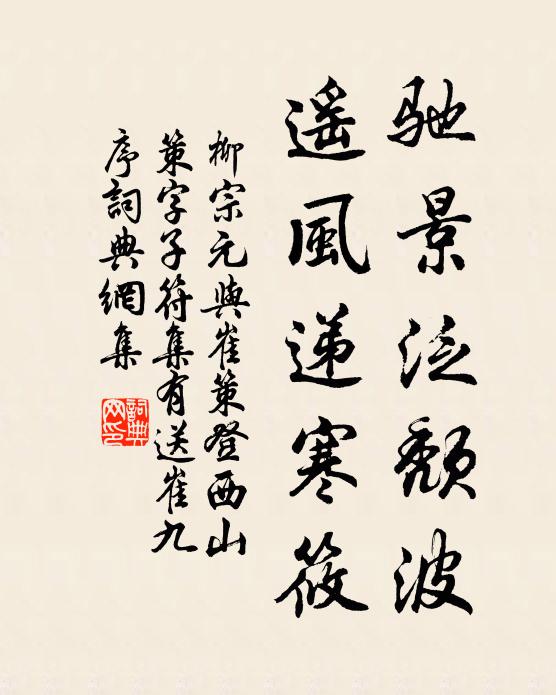 驰景泛颓波
遥風递寒筱
柳宗元與崔策登西山
策字子符集有送崔九
序詞典網集
詞典網印